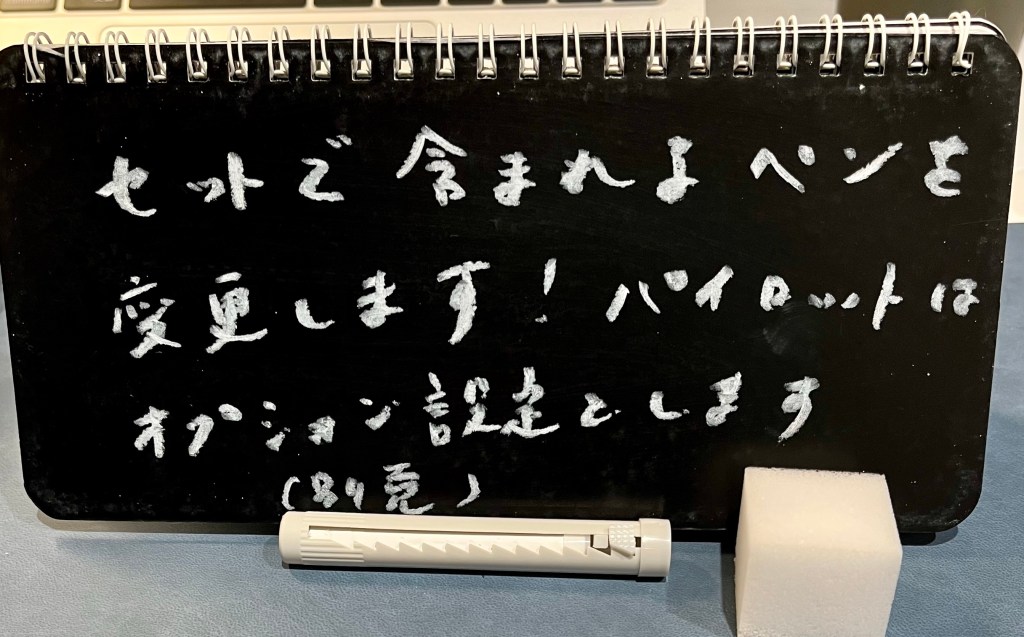 セットで含まれよペンを
変更します！パイロットは
オプション設定とします
(別売)